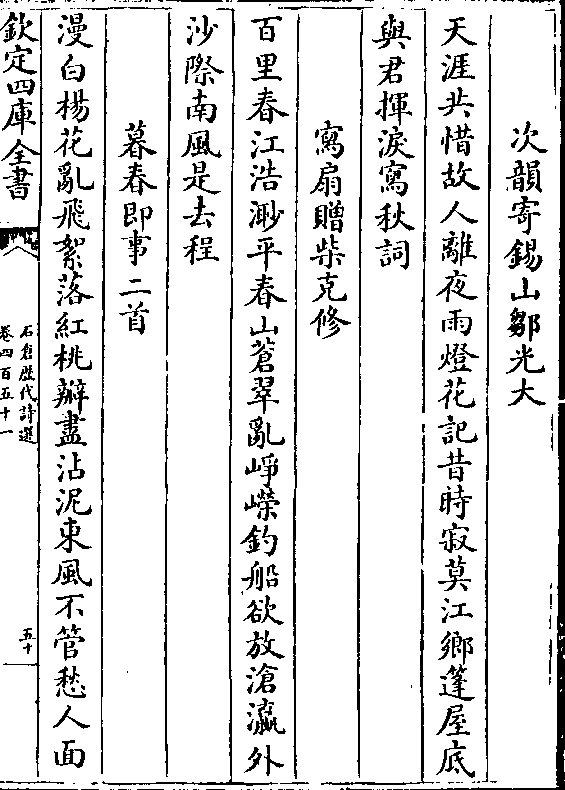 次韻寄錫山鄒光大
天涯共惜故人離夜雨燈花記昔時寂莫江鄉蓬屋底
與君揮淚寫秋詞
寫扇贈柴克修
百里春江浩渺平春山蒼翠亂崢嶸釣船欲放滄瀛外
沙際南風是去程
暮春即事二首
漫白楊花亂飛絮落紅桃瓣盡沾泥東風不管愁人面
欽定四庫全書
石倉歷代詩選
卷四百五十一
五十